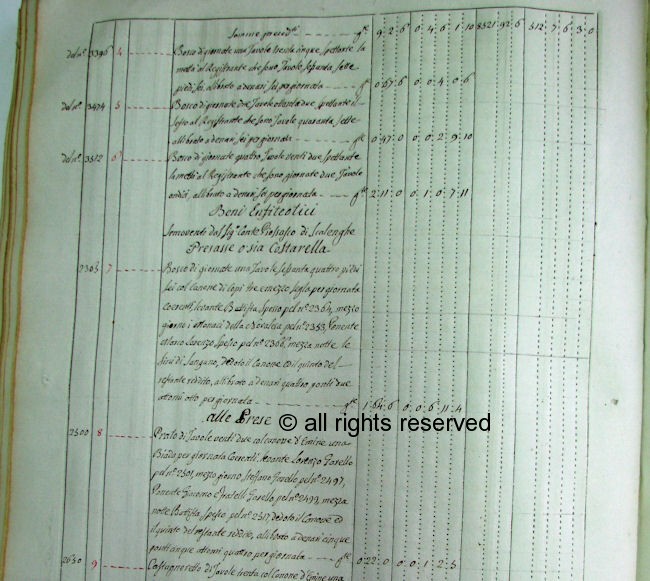 Somme preced.ti g.te 9 2 6 0 4 6 1 10 8521 92 6 512 7 6 3 0
del n.o 3396 4 Bosco di giornate una Tavole trenta cinque, spettante la
metà al Registrante che sono Tavole sessanta sette
piedi sei, allibrato a denari sei per giornata g.te 0 67 6 0 0 4 0 6
del n.o 3474 5 Bosco di giornate due Tavole ottanta due, spettante il
sesto al Registrante che sono Tavole quaranta sette
allibrato a denari sei per giornata g.te 0 47 0 0 0 2 9 10
del n.o 3512 6 Bosco di giornate quattro Tavole venti due spettante
la metà al Registrante che sono giornate due Tavole
undici, allibrato a denari sei per giornata g.te 2 11 0 0 1 0 7 11
Beni Enfiteotici
Semoventi dal Sig.r Conte Piossasco di Scalenghe
Presasse o sia Costarella
2365 7 Bosco di giornate una Tavole sessanta quattro piedi
sei col canone di copi tre e mezzo segla per giornata
Coerenti, levante Battista Spesso pel n.o 2364, mezzo
giorno i Monaci della Novalesa pel n.o 2353, Ponente
Lorenzo Spesso pel n.o 2366, mezza notte le
fini di Sangano, dedotto il Canone ed il quinto del
restante reddito, allibrato a denari quattro ponti due
attomi otto per giornata g.te 1 64 6 0 0 6 11 4
alle Prese
© all rights reserved
2500 8 Prato di Tavole venti due col canone d'Emine una
Biada per giornata Coerenti, levante Lorenzo Gorello
pel n.o 2501, mezzo giorno, Stefano Gorello pel n.o 2497,
Ponente Giacomo e fratelli Gorello, pel n.o 2499, mezza
notte Battista Spesso pel n.o 2517 dedotto il Canone ed
il quinto del restante reddito, allibrato a denari cinque
ponti cinque attomi quattro per giornata g.te 0 22 0 0 1 2 5
2650 9 Castagneretto di Tavole trenta col Canone d'Emine una